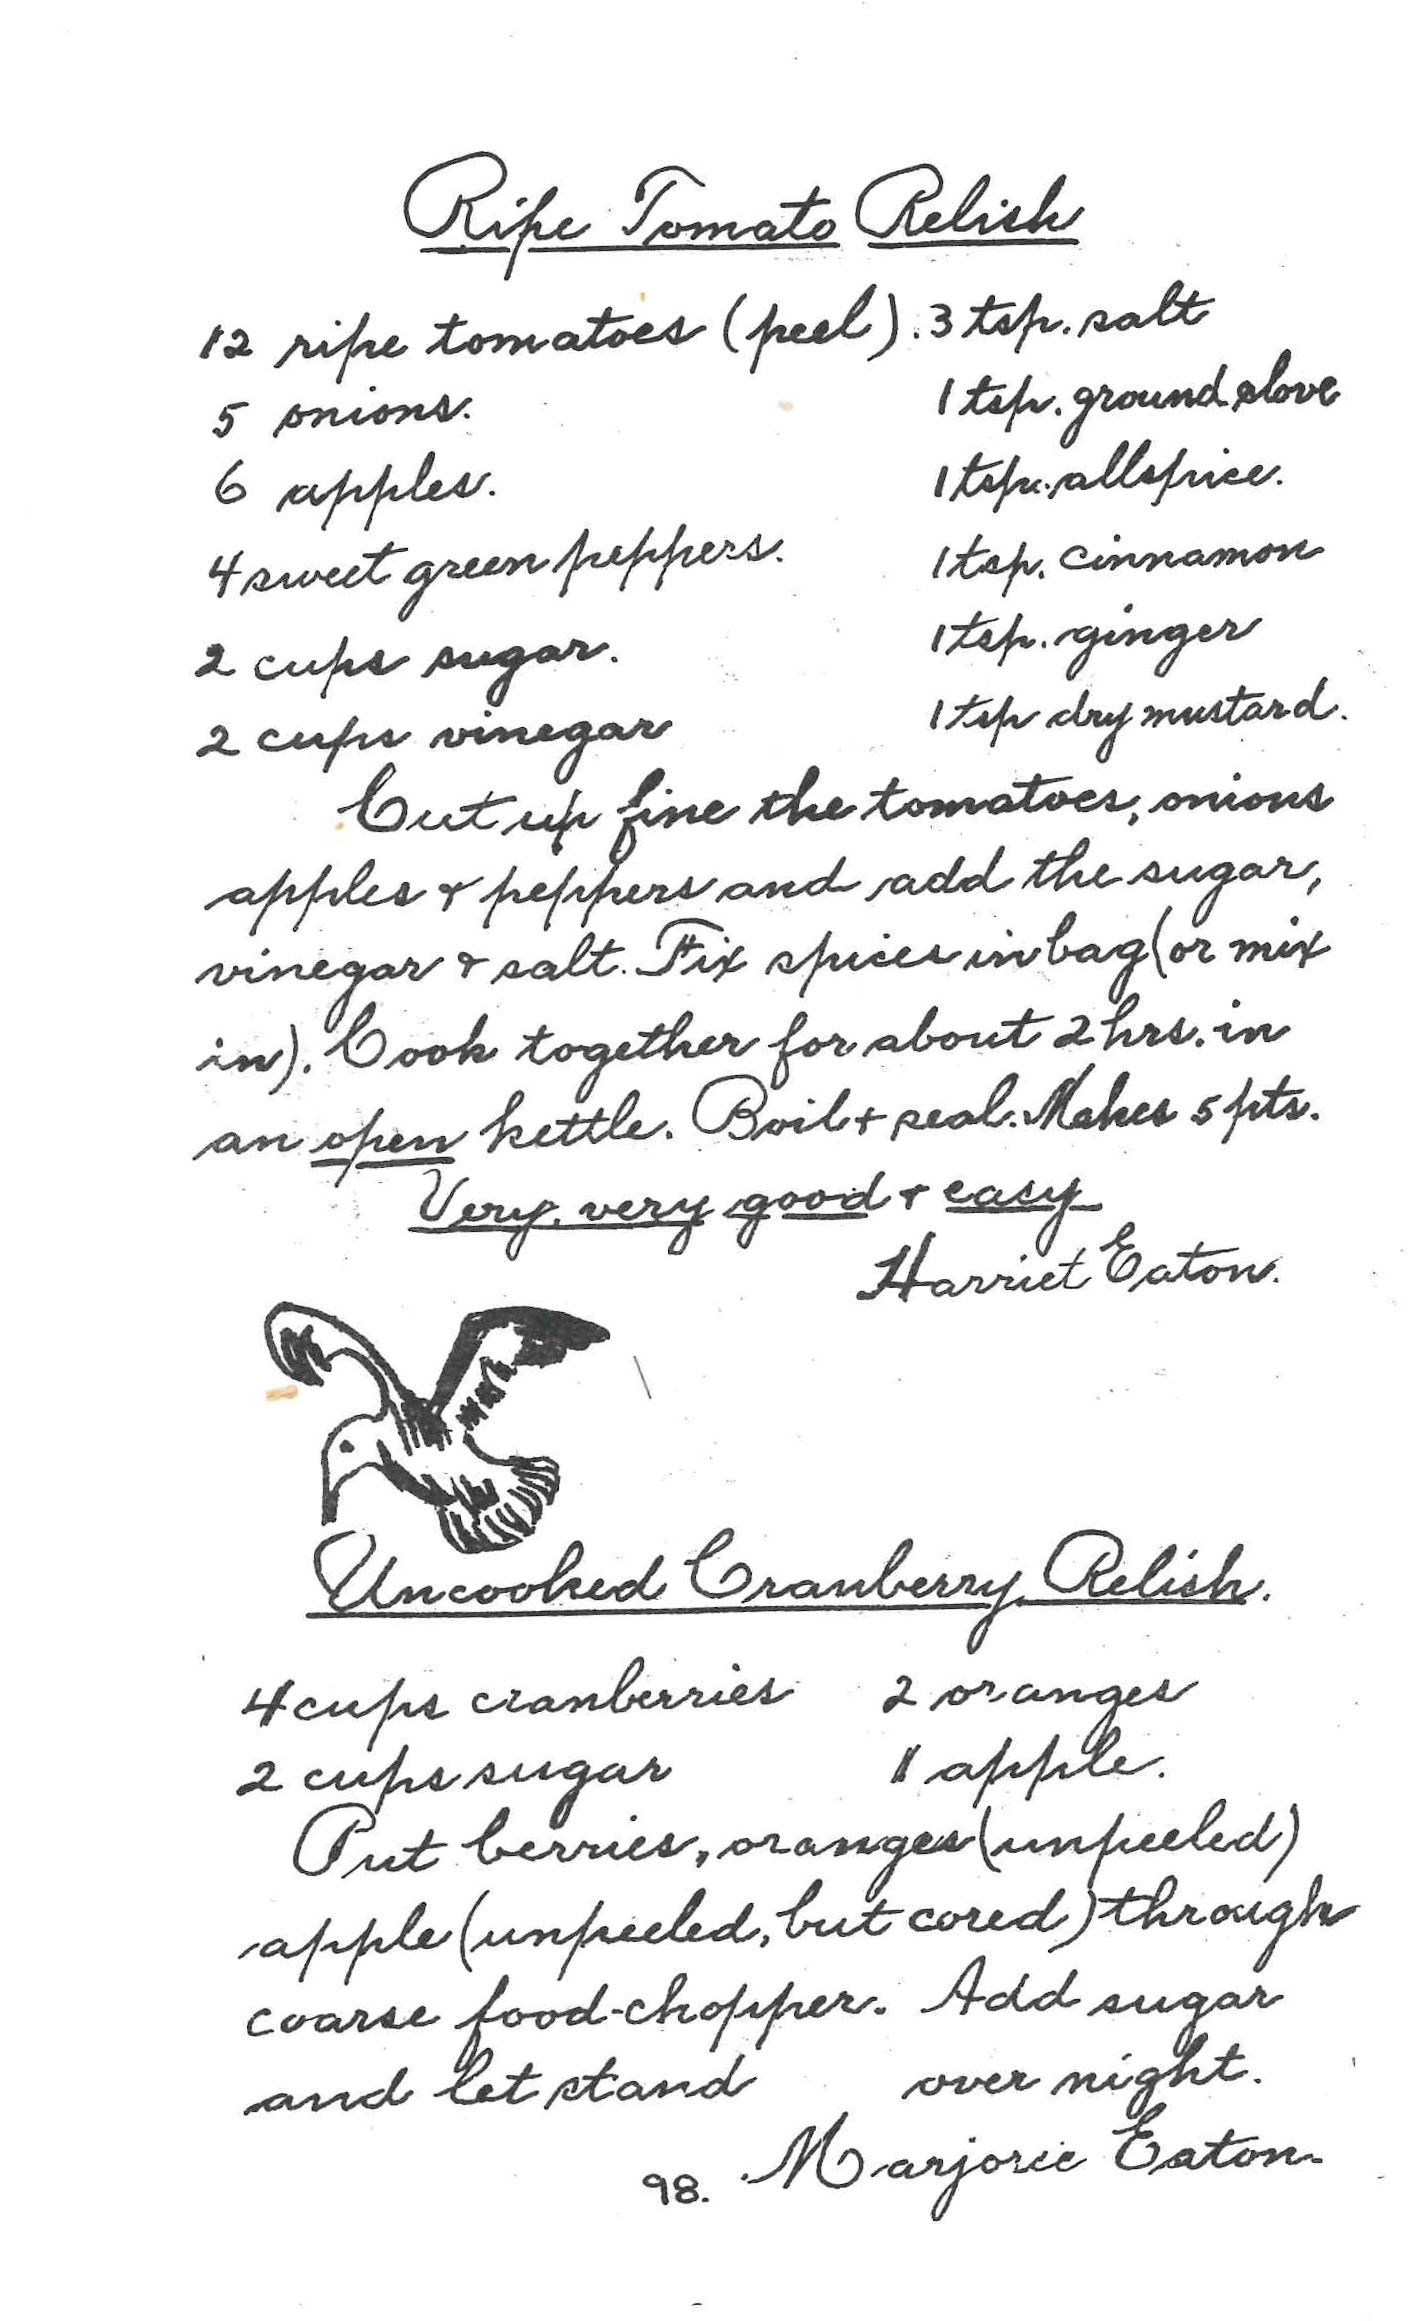 Ripe Tomato Relish
12 ripe tomatoes (peel). 3 tsp. salt
5 onions. 1 tsp. ground clove
6 apples. 1 tsp. allspice.
4 sweet green peppers. 1 tsp. cinnamon
2 cups sugar. 1 tsp. ginger
2 cups vinegar 1 tsp dry mustard.
Cut up fine the tomatoes, onions
apples + peppers and add the sugar,
vinegar + salt. Fix spices in bag (or mix
in). Cook together for about 2 hrs. in
an open kettle. Boil + seal. Makes 5 pts.
Very, very good + easy
Harriet Eaton.
Uncooked Cranberry Relish.
4 cups cranberries 2 oranges
2 cups sugar 1 apple.
Put berries, oranges (unpeeled)
apple (unpeeled, but cored) through
coarse food-chopper. Add sugar
and let stand over night.
Marjorie Eaton.
98.